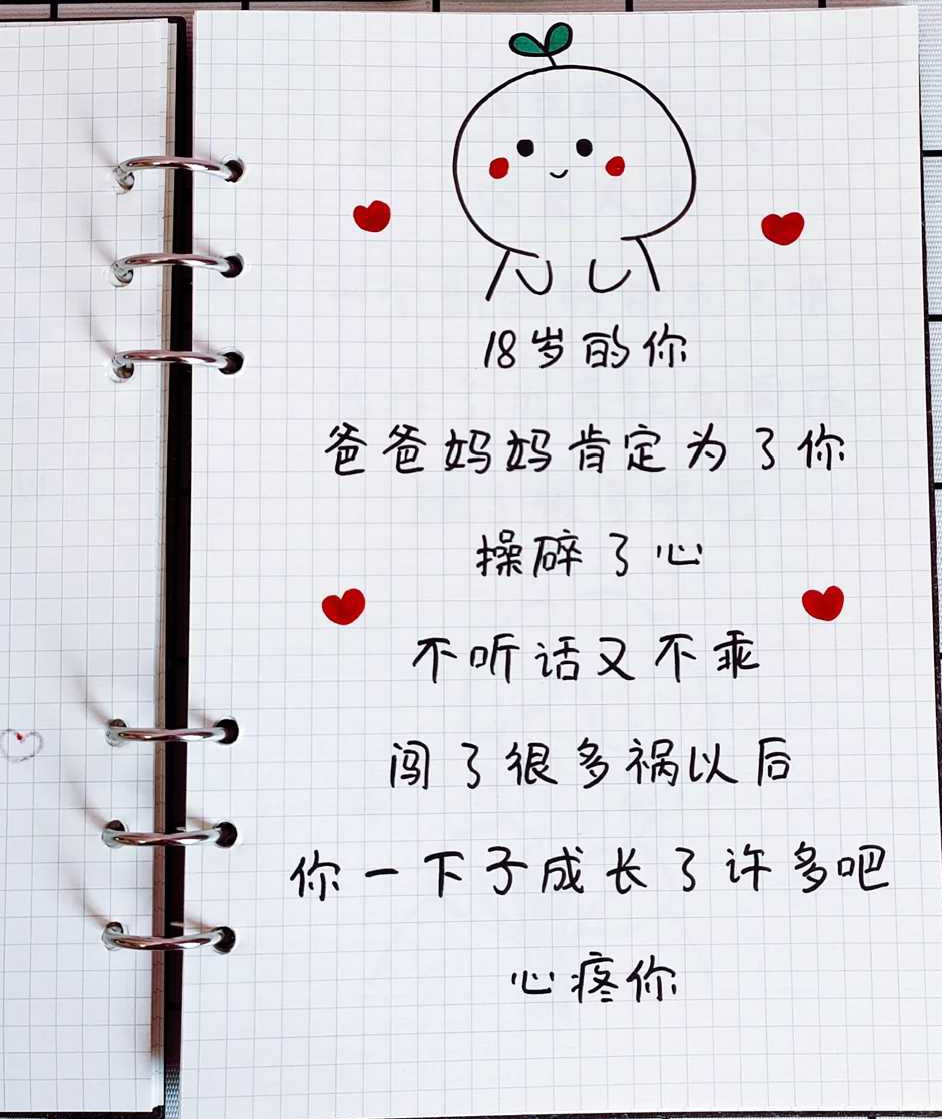 18岁的你
爸爸妈妈肯定为了你
操碎了心
不听话又不乖
闯了很多祸以后
你一下子成长了许多吧
心疼你